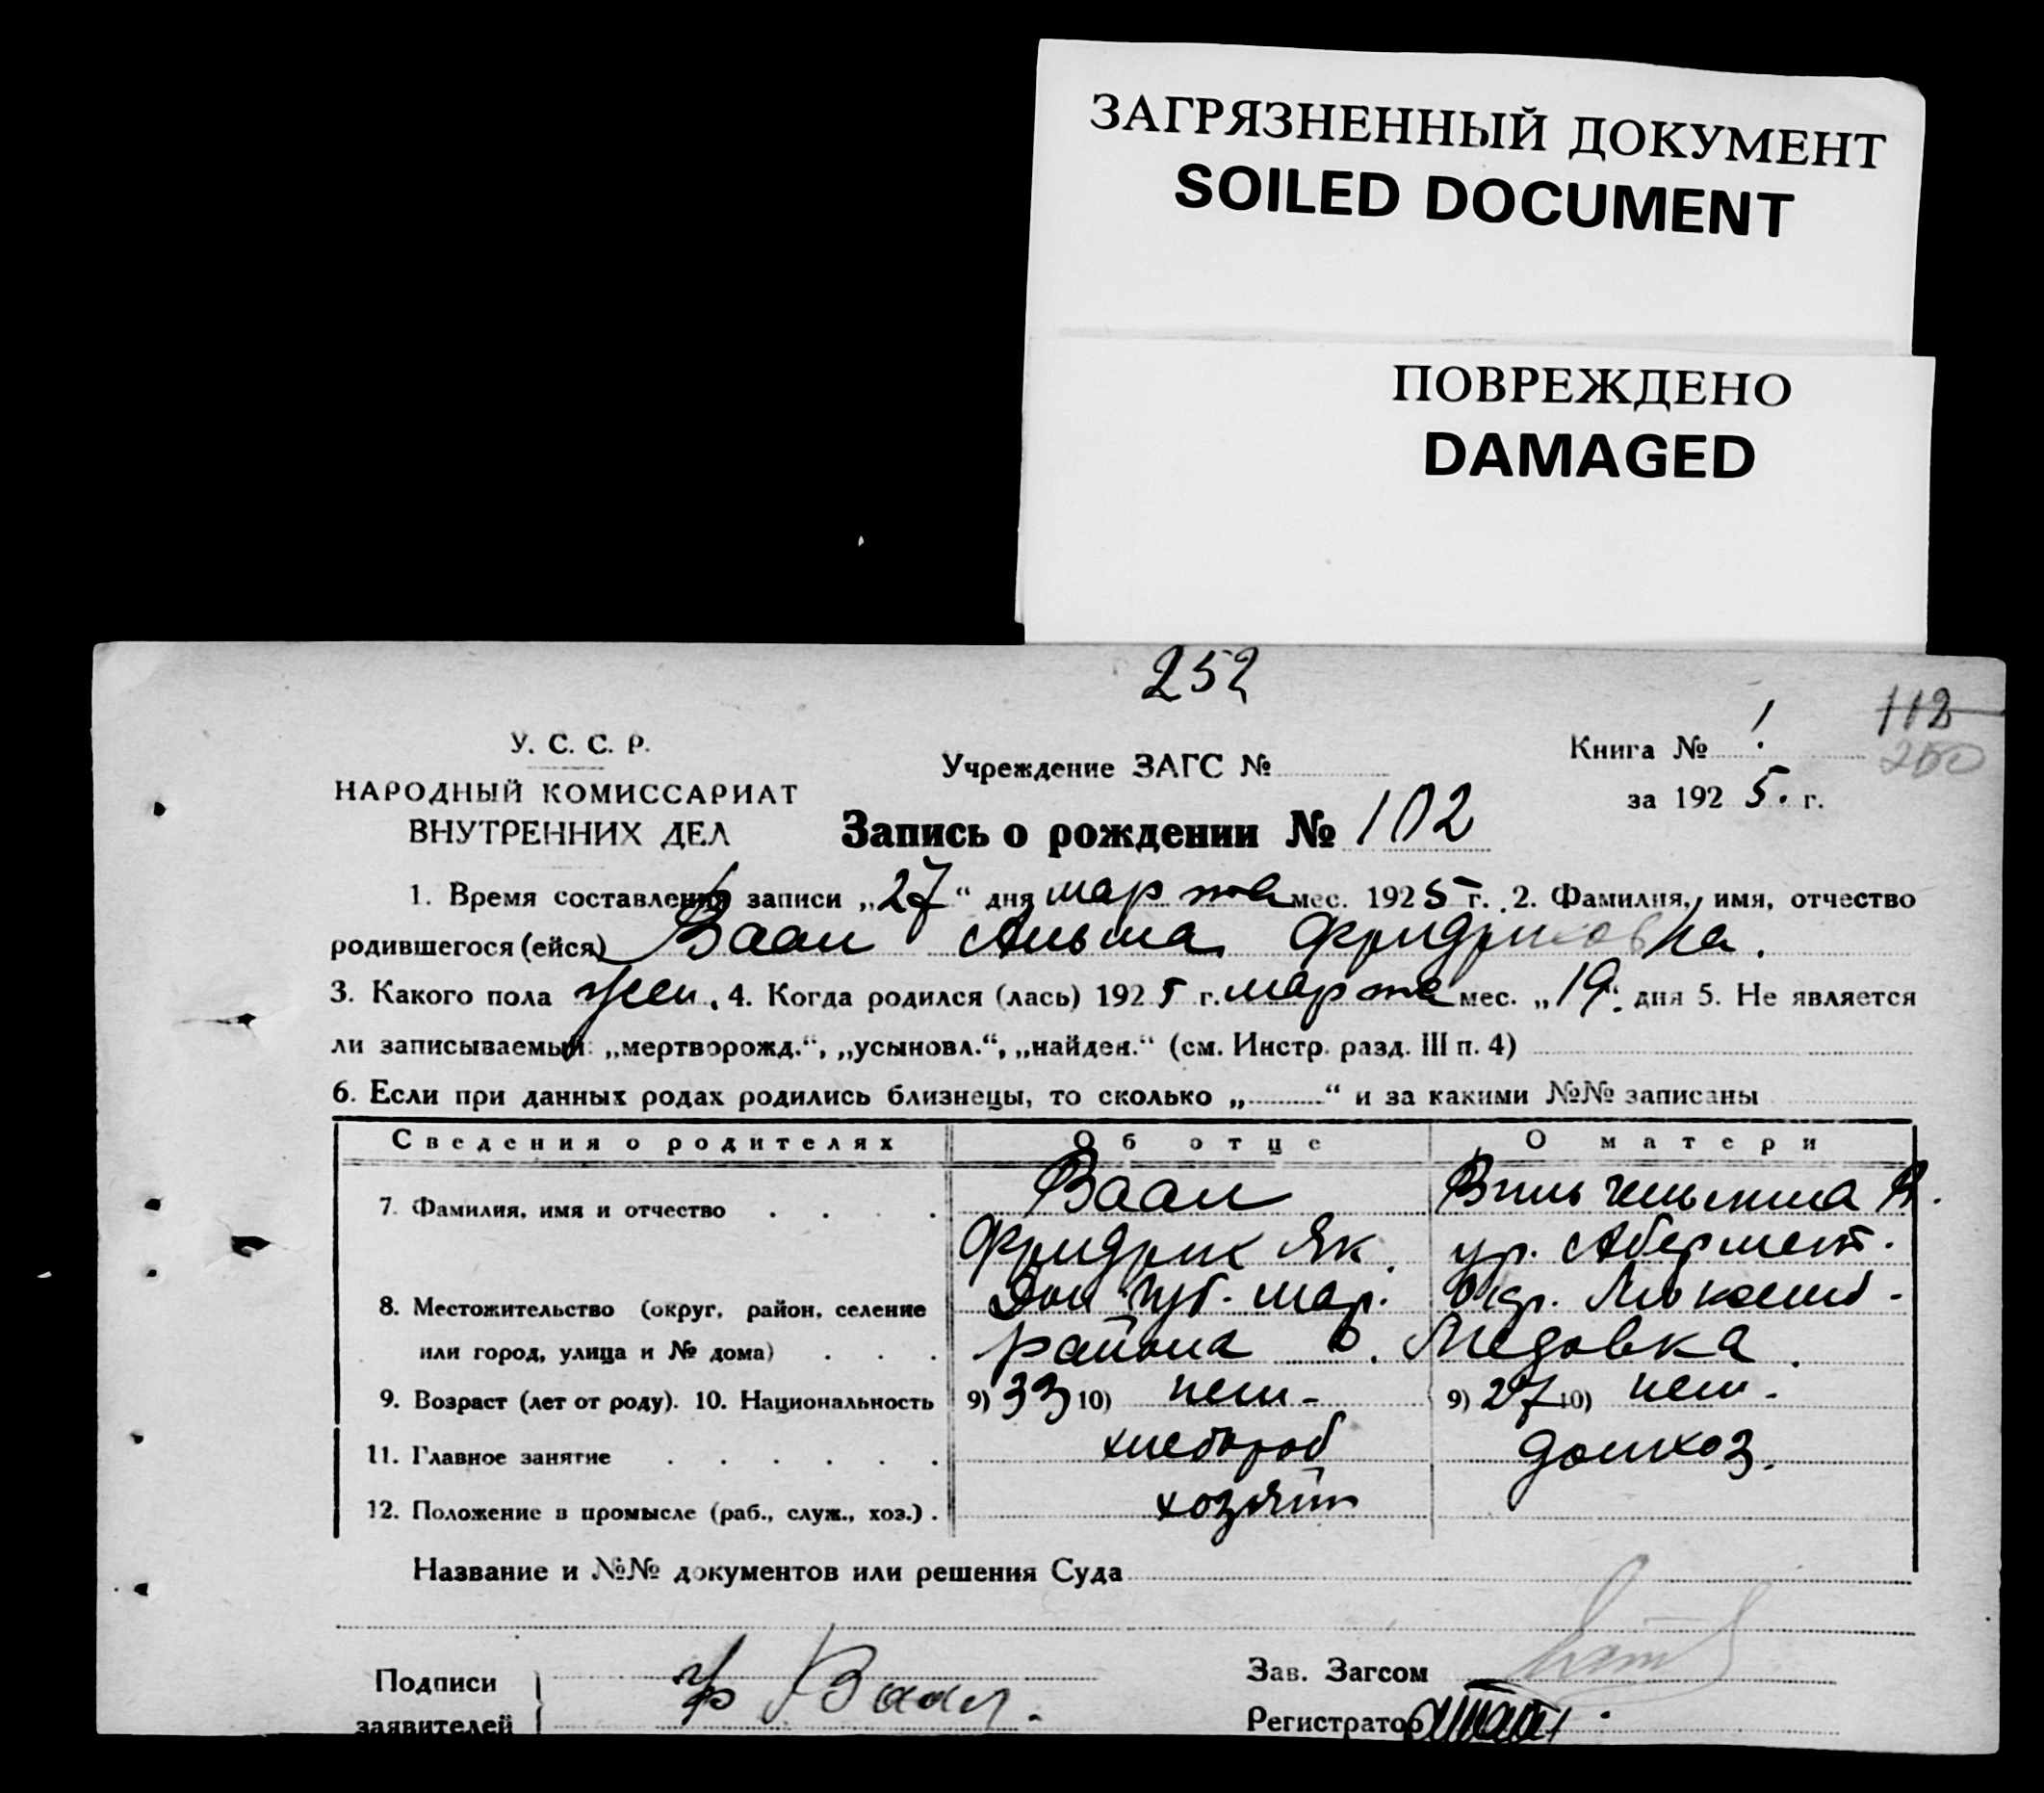 ЗАГРЯЗНЕННЫЙ ДОКУМЕНТ
SOILED DOCUMENT
ПОВРЕЖДЕНО
DAMAGED
252
112
250
У. С. С. Р.
НАРОДНЫЙ КОМИССАРИАТ
ВНУТРЕННИХ ДЕЛ
Учреждение ЗАГС №
Книга № 1
за 1925. г.
Запись о рождении № 102
1. Время составления записи „27“ дня марта мес. 1925 г. 2. Фамилия, имя, отчество
родившегося (ейся) Ваал Альма Фридриховна.
3. Какого пола жен. 4. Когда родился (лась) 1925 г. марта мес. „19“ дня 5. Не является
ли записываемый: „мертворожд.“, „усыновл.“, „найден.“ (см. Инстр. разд. III п. 4)
6. Если при данных родах родились близнецы, то сколько „ “ и за какими №№ записаны
Сведения о родителях Об отце О матери
7. Фамилия, имя и отчество Ваал Вильгельмина
Фридрих Як.
8. Местожительство (округ, район, селение Дон губ. мар.
или город, улица и № дома) района с. Медовка.
9. Возраст (лет от роду). 10. Национальность 9) 33 10) нем. 9) 27 10) нем.
11. Главное занятие хлебороб домхоз.
12. Положение в промысле (раб., служ., хоз.) хозяин
Название и №№ документов или решения Суда
Подписи заявителей Ваал.
Зав. Загсом
Регистратор